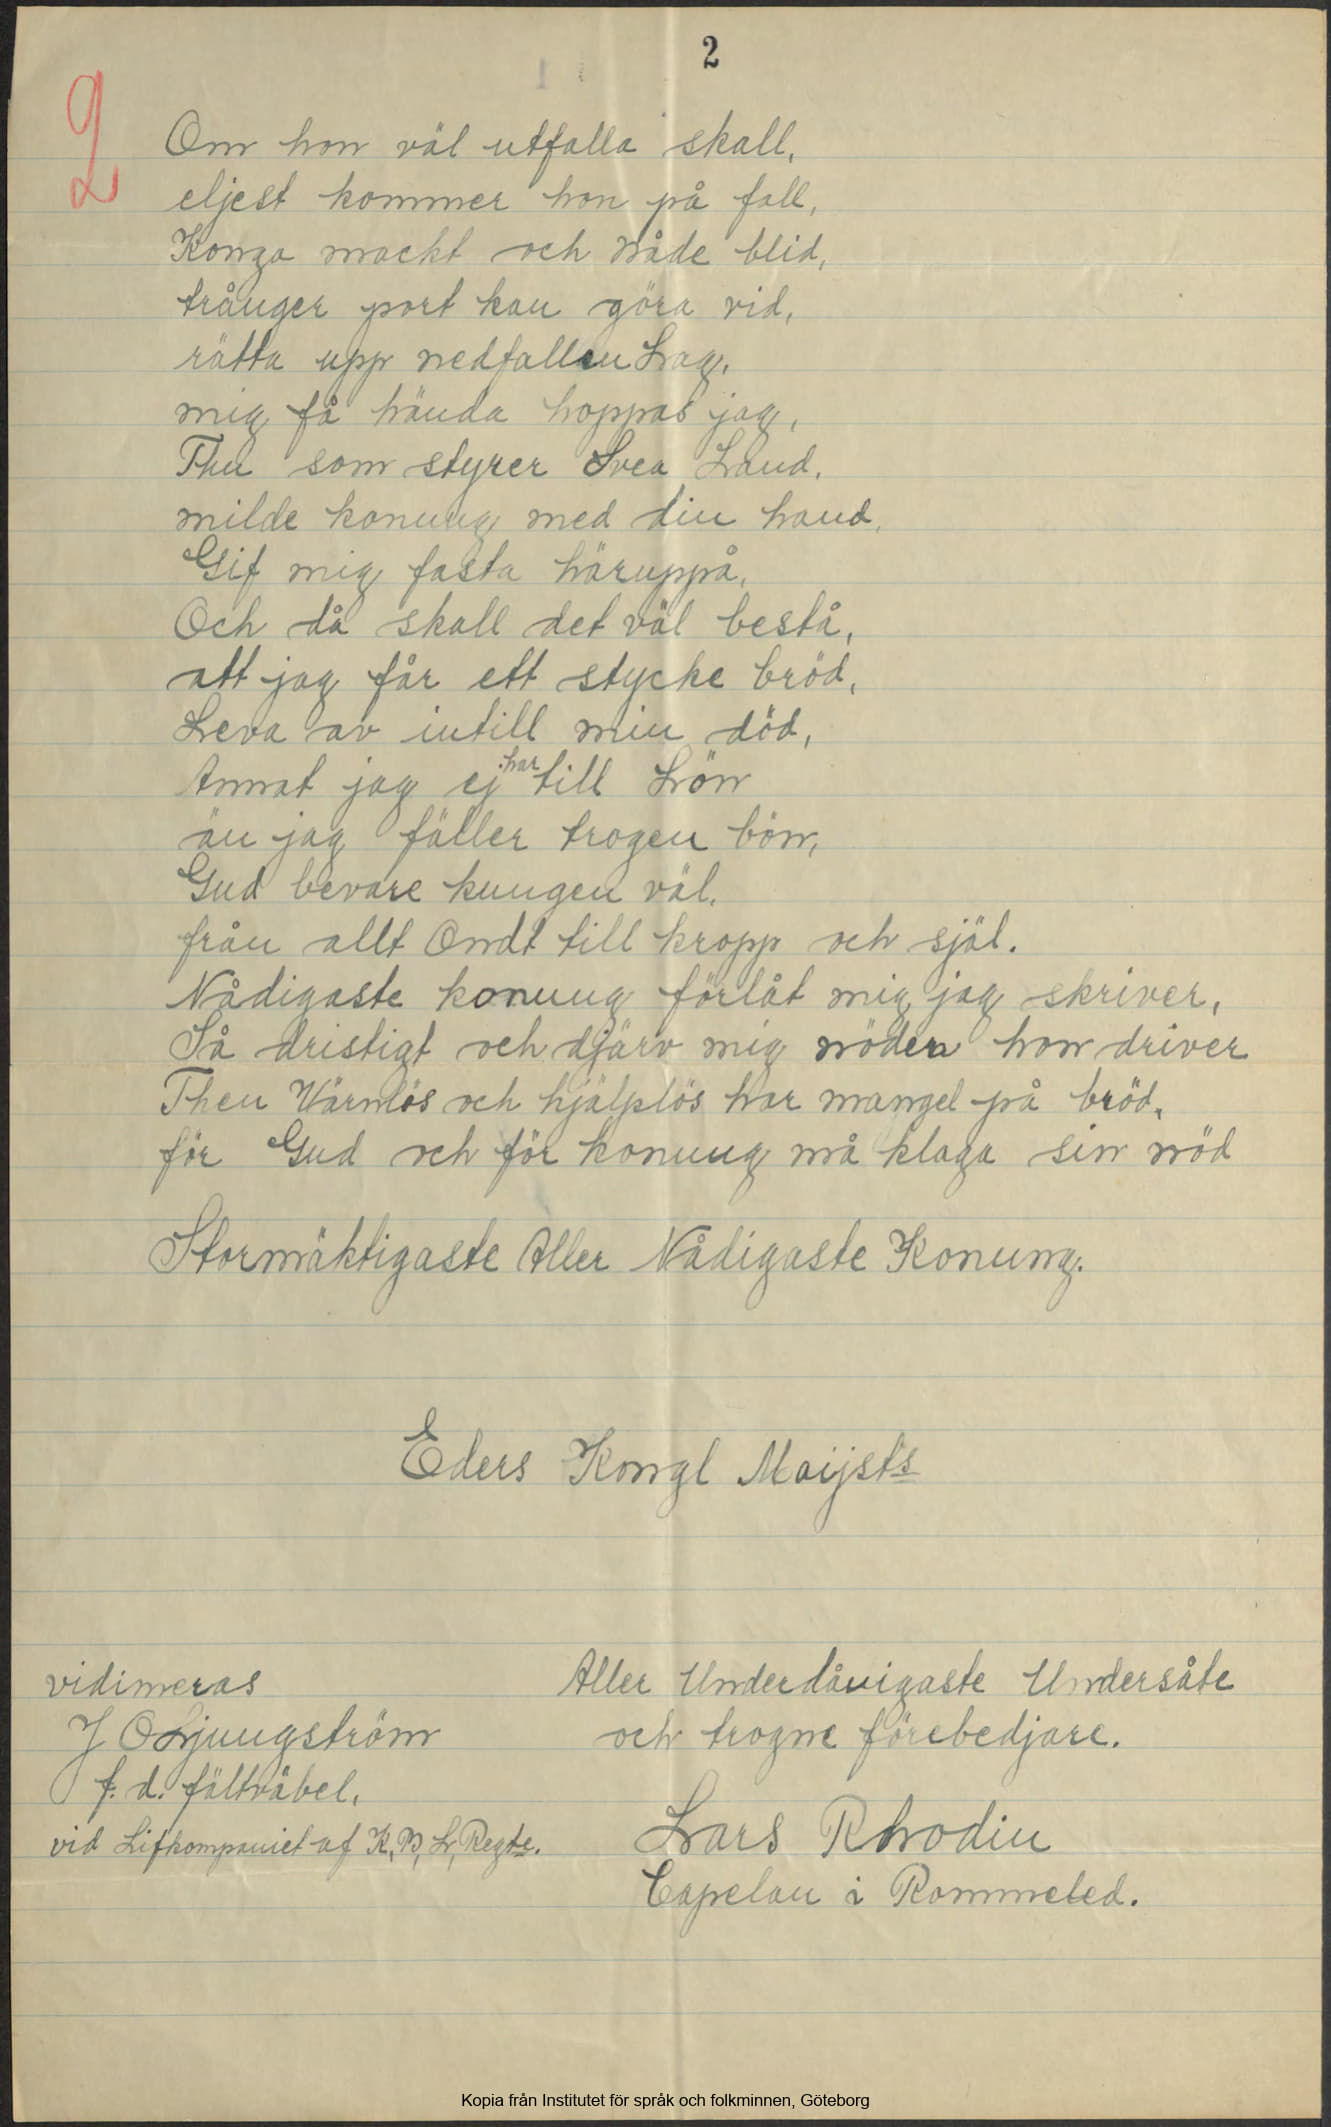 2
2
Om hon väl utfalla skall,
eljest kommer hon på fall,
Konga mackt och Nåde blid,
trånger port kan göra vid,
rätta upp nedfallen Lag,
mig få hända hoppas jag,
Thu som styrer Svea Land.
milde konung med din hand,
Gif mig fasta häruppå,
Och då skall det väl bestå,
att jag får ett stycke bröd,
Leva av intill min död,
Annat jag ej har till Lön
än jag fäller trogen bön,
Gud bevare kungen väl.
från allt Ondt till kropp och själ.
Nådigaste konung förlåt mig jag skriver,
Så dristigt och djärv mig nöden hon driver
Then Wärnlös och hjälplös har mangel på bröd,
för Gud och för konung må klaga sin nöd
Stormäktigaste Aller Nådigaste Konung.
Eders Kongl Maijsts
vidimeras
J O Ljungström
f. d. fältväbel.
vid Lifkompaniet af K, B, L, Regte.
Aller Underdånigaste Undersåte
och trogne förebedjare.
Lars Rhodin
Capelan i Rommeled.
Kopia från Institutet för språk och folkminnen, Göteborg